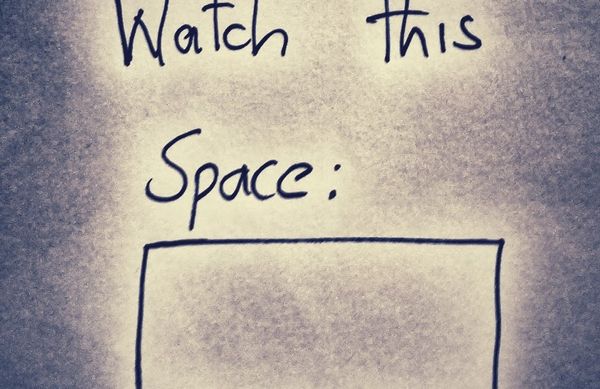 Watch this
Space: